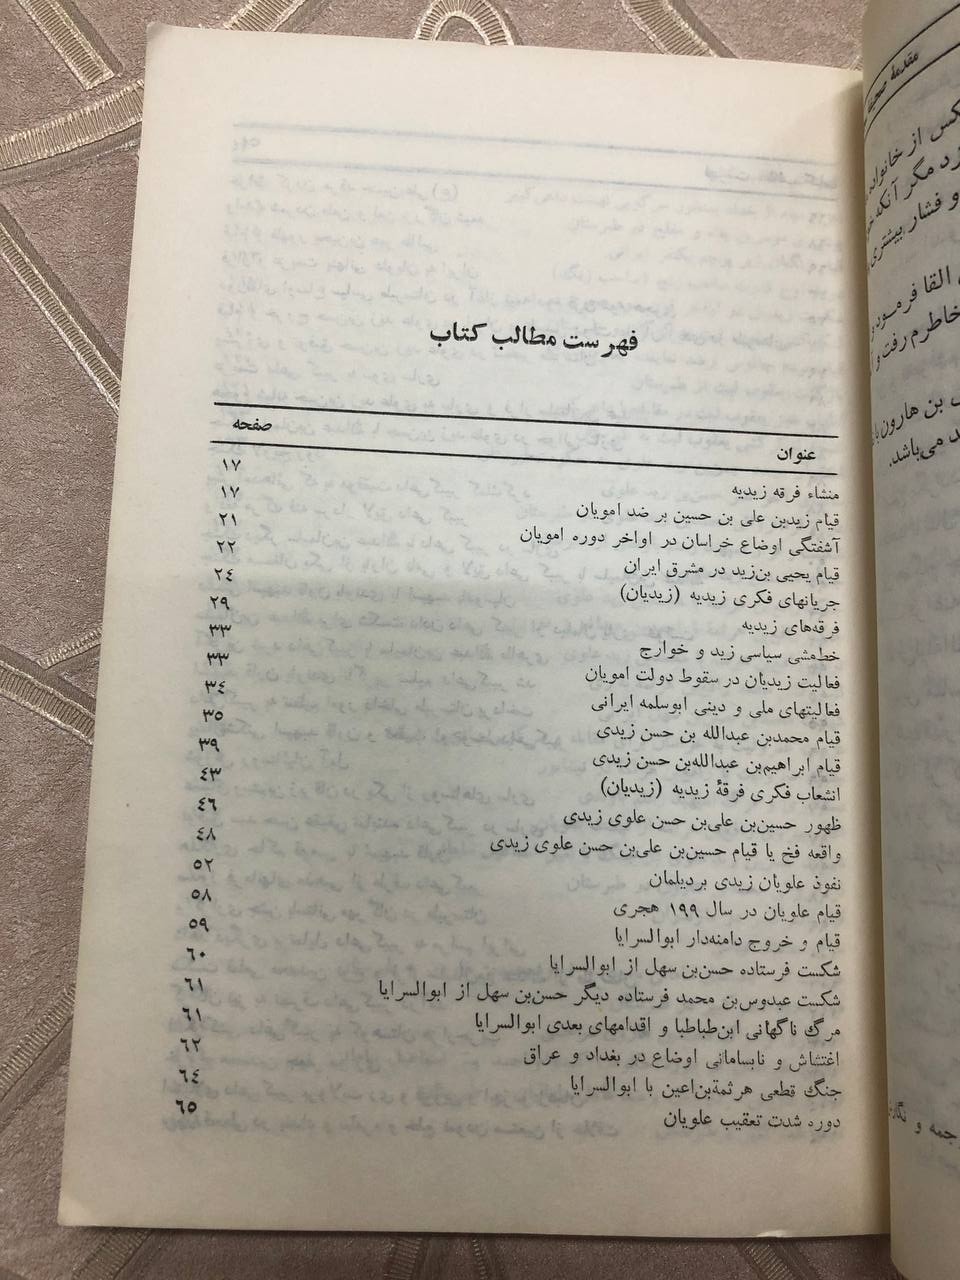 فهرست مطالب کتاب
عنوان صفحه
منشاء فرقه زیدیه ۱۷
قیام زیدبن علی بن حسین بر ضد امویان ۱۷
آشفتگی اوضاع خراسان در اواخر دوره امویان ۲۱
قیام یحیی بن‌زید در مشرق ایران ۲۲
جریانهای فکری زیدیه (زیدیان) ۲۴
فرقه‌های زیدیه ۲۹
خط‌مشی سیاسی زید و خوارج ۳۳
فعالیت زیدیان در سقوط دولت امویان ۳۳
فعالیتهای ملی و دینی ابوسلمه ایرانی ۳۴
قیام محمدبن عبدالله بن حسن زیدی ۳۵
قیام ابراهیم‌بن عبدالله‌بن حسن زیدی ۳۹
انشعاب فکری فرقهٔ زیدیه (زیدیان) ۴۳
ظهور حسین‌بن علی‌بن حسن علوی زیدی ۴۶
واقعه فخ یا قیام حسین‌بن علی‌بن حسن علوی زیدی ۴۸
نفوذ علویان زیدی بردیلمان ۵۲
قیام علویان در سال ۱۹۹ هجری ۵۸
قیام و خروج دامنه‌دار ابوالسرایا ۵۹
شکست فرستاده حسن‌بن سهل از ابوالسرایا ۶۰
شکست عبدوس‌بن محمد فرستاده دیگر حسن‌بن سهل از ابوالسرایا ۶۱
مرگ ناگهانی ابن‌طباطبا و اقدامهای بعدی ابوالسرایا ۶۱
اغتشاش و نابسامانی اوضاع در بغداد و عراق ۶۲
جنگ قطعی هرثمة‌بن‌اعین با ابوالسرایا ۶۴
دوره شدت تعقیب علویان ۶۵
مقدمهٔ
کس از خانواده
مگر آنکه
و فشار بیشتری
القا فرمود و
خاطرم رفت و
بن هارون
می‌باشد.